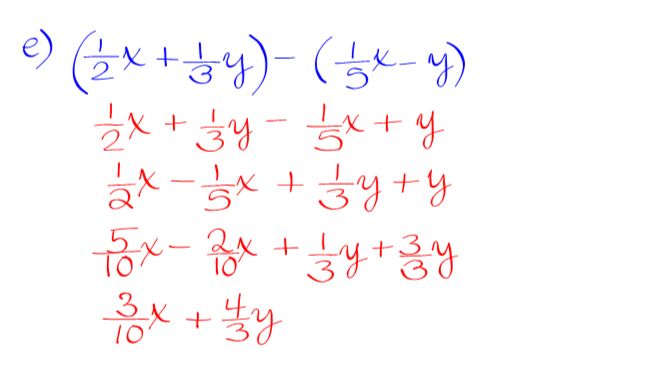 e) (1/2x + 1/3y) - (1/5x - y)
1/2x + 1/3y - 1/5x + y
1/2x - 1/5x + 1/3y + y
5/10x - 2/10x + 1/3y + 3/3y
3/10x + 4/3y